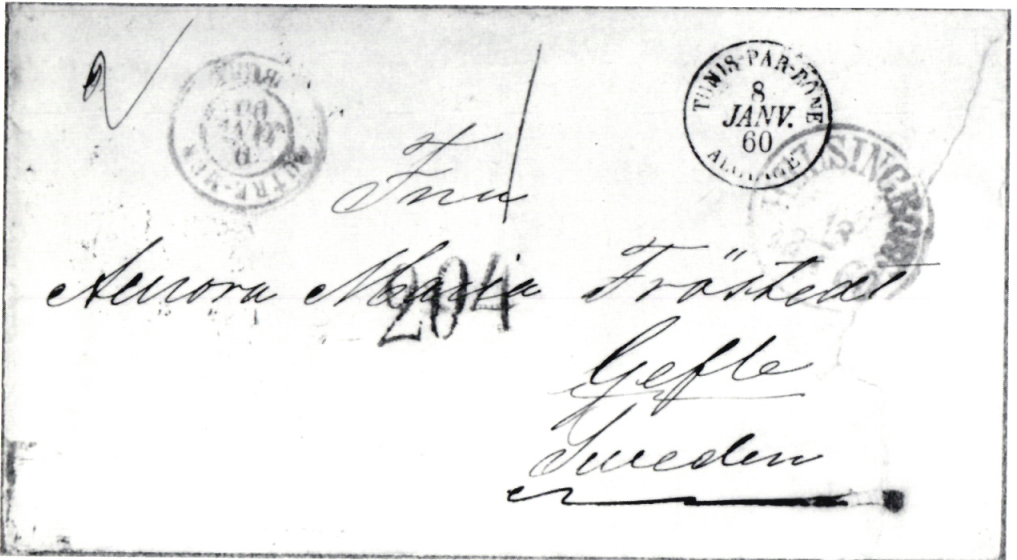 TUNIS-PAR-BÔNE
8
JANV.
60
OUTRE-MER
HELSINGBORG
Fru
Aurora Maria Fröstedt
204
Gefle
Sweden